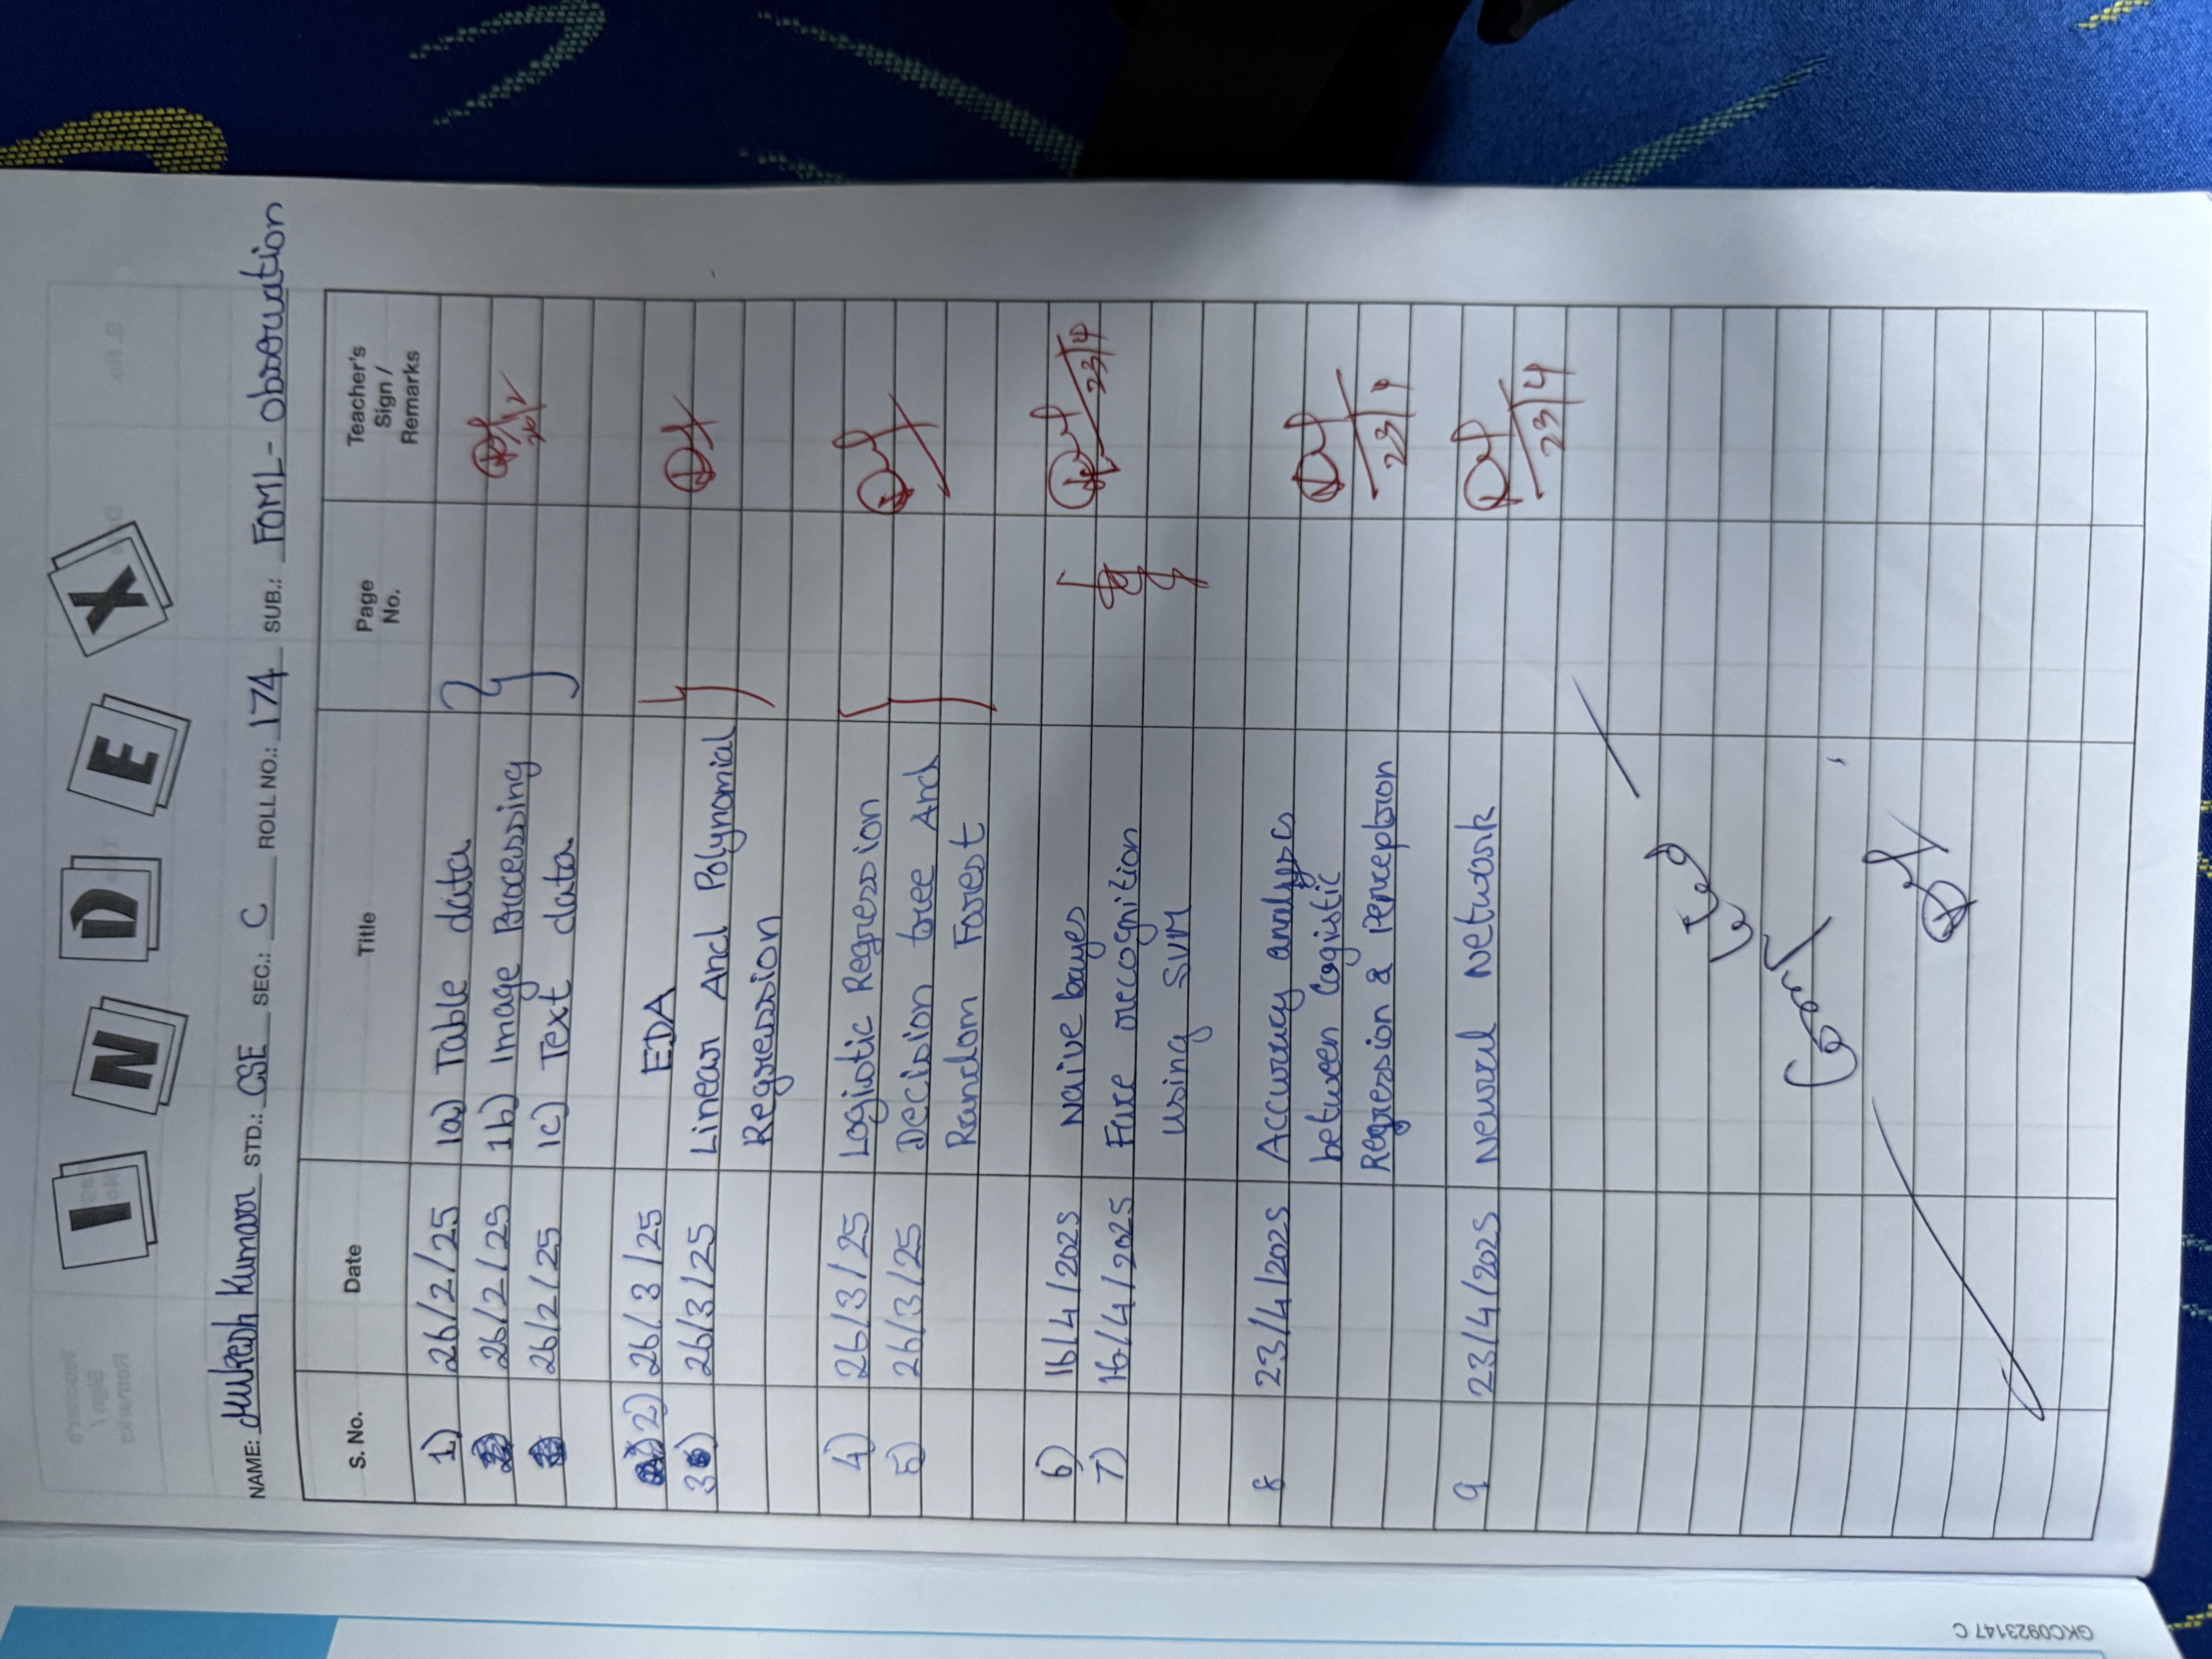 INDEX
NAME: Mukesh Kumarr STD.: CSE SEC.: C ROLL NO.: 174 SUB.: FOML - Observation
S. No. Date Title Page No. Teacher's Sign / Remarks
1) 26/2/25 1a) Table data
26/2/25 1b) Image Processing
26/2
26/2/25 1c) Text data
2) 26/3/25 EDA
3) 26/3/25 Linear And Polynomial
Regression
4) 26/3/25 Logistic Regression
5) 26/3/25 Decision tree And
Random Forest
6) 16/4/2025 Naive bayes 23/4
7) 16/4/2025 Face recognition
Using SVM
8 23/4/2025 Accuracy
between Logistic
Regression & Perceptron 23/4
9 23/4/2025 Neural Network
23/4
Completed
GKC0923147 C